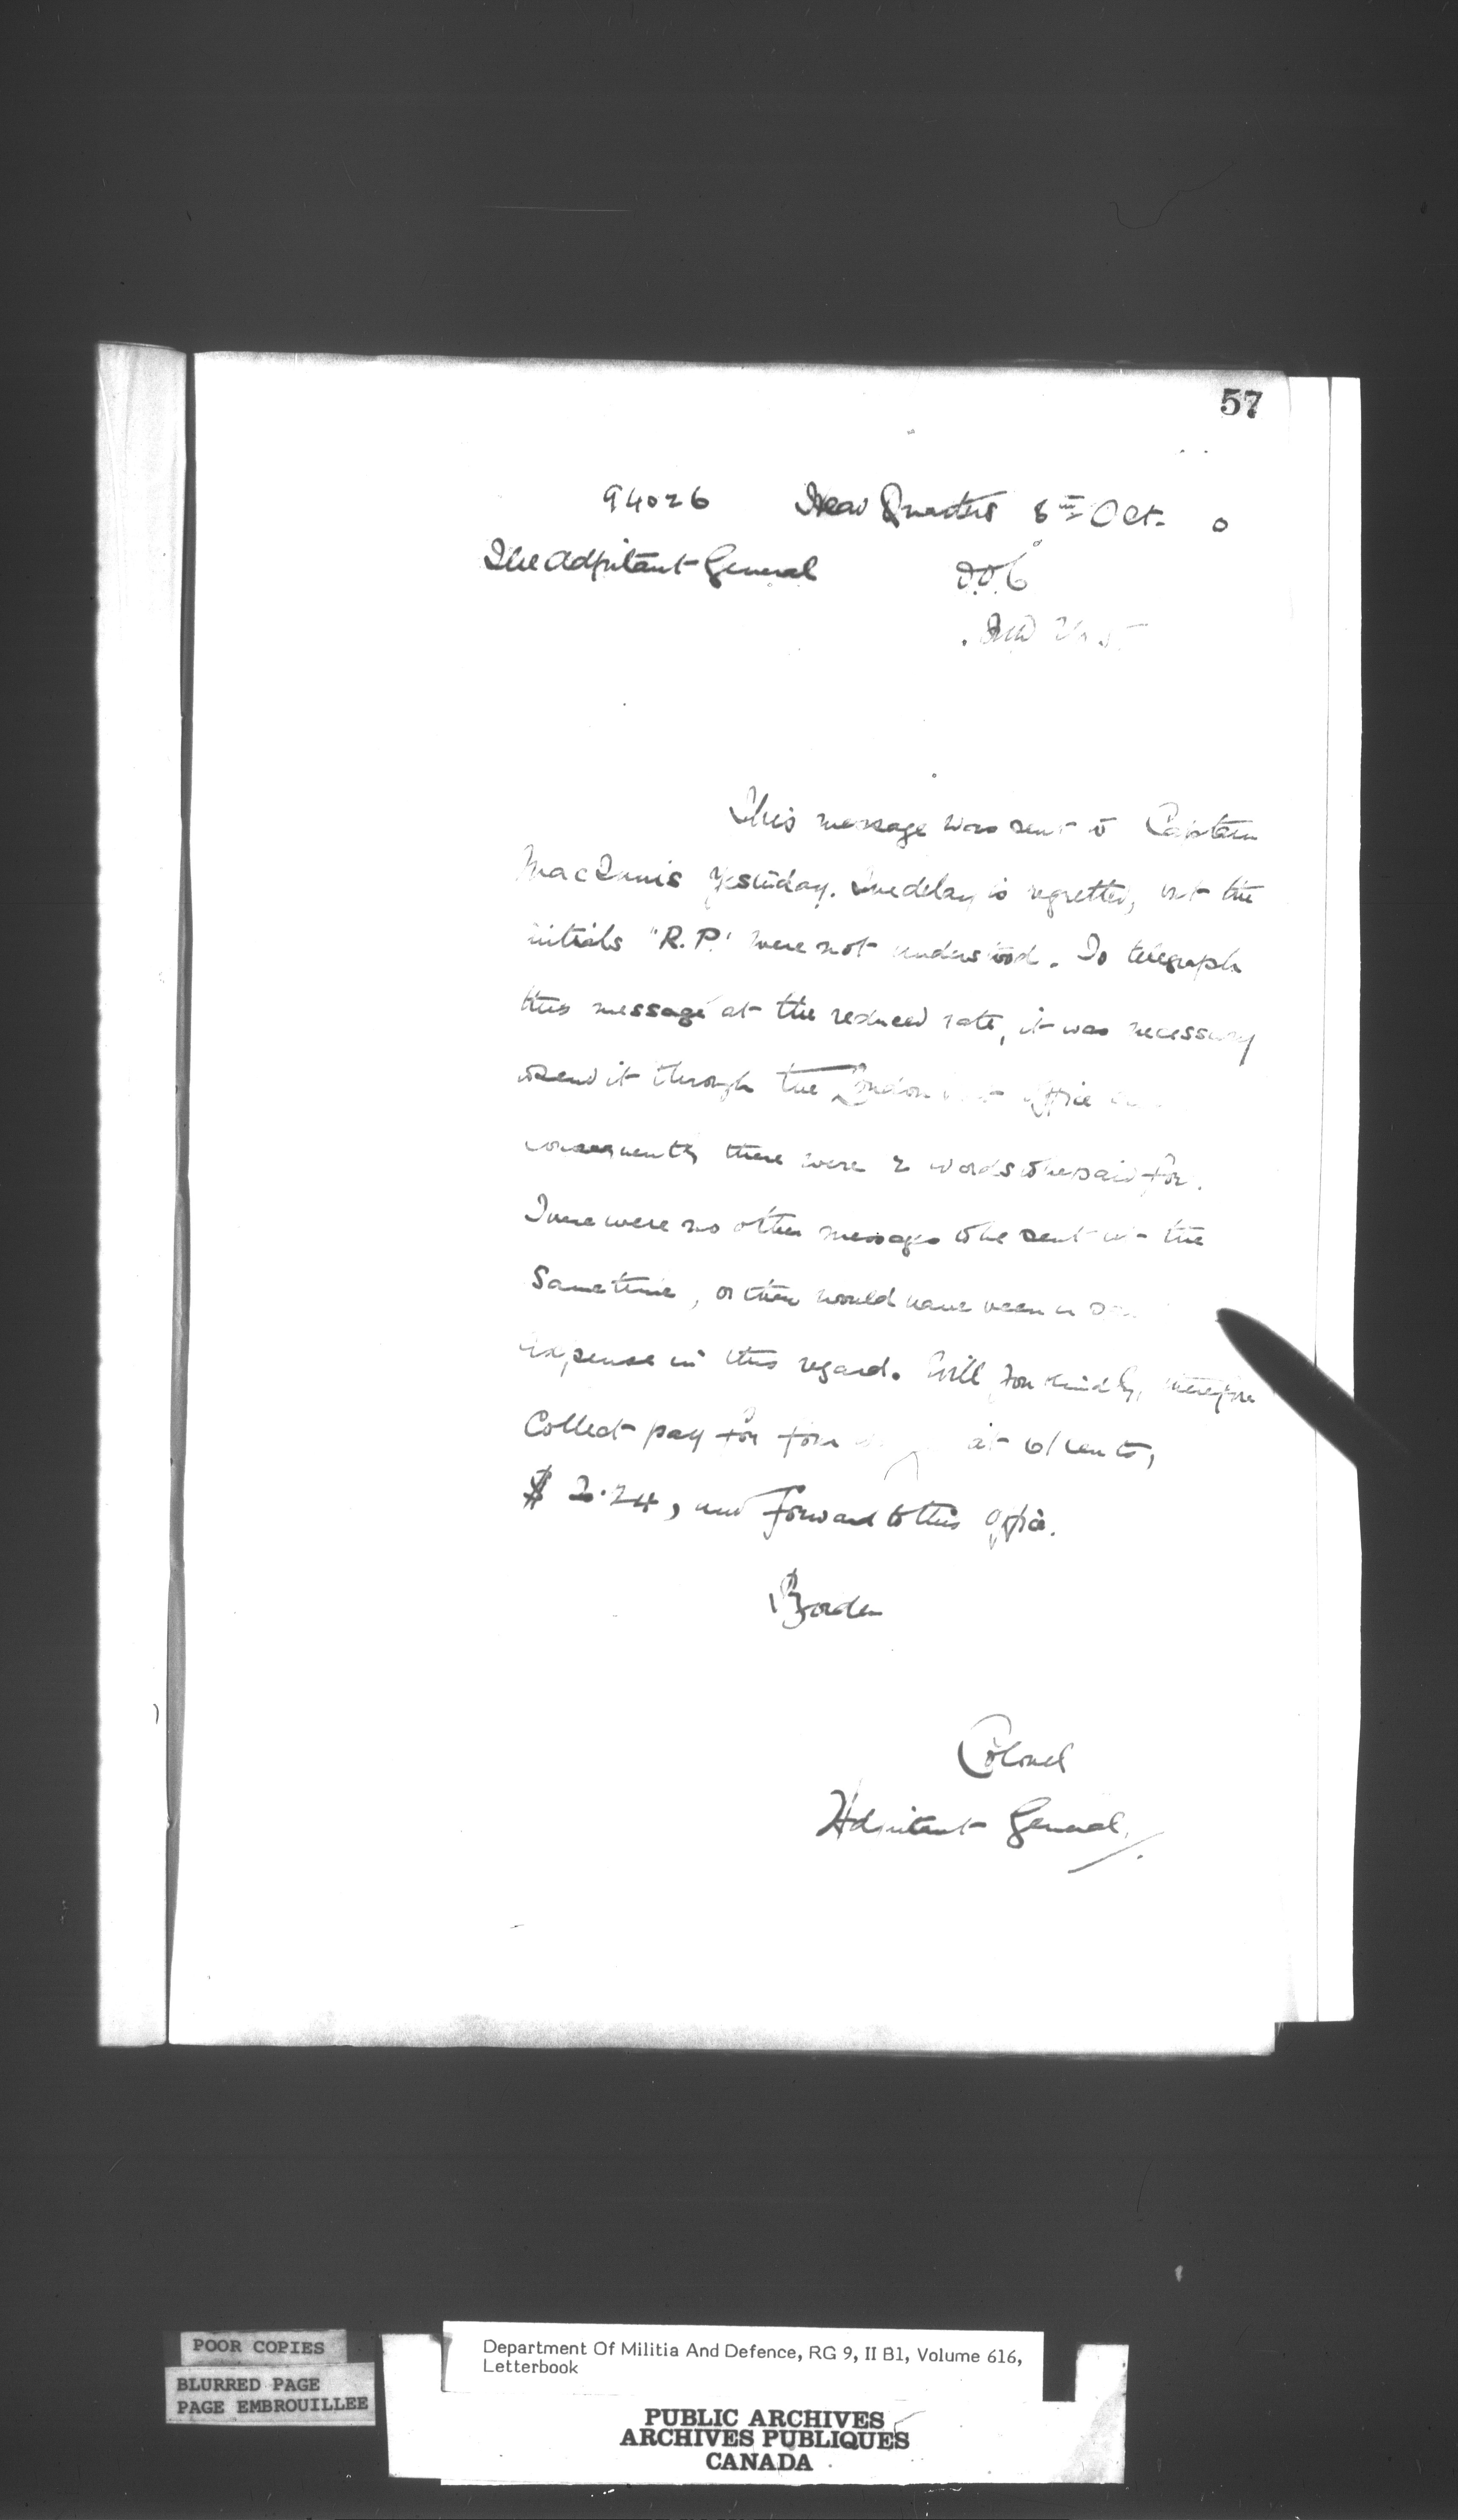 57
94026 Head Quarters 8th Oct. 0
The Adjutant General D.O.C
This message was sent to Captain
MacInnis yesterday. The delay is regretted, but the
initials "R.P." were not understood. To telegraph
this message at the reduced rate, it was necessary
to send it through the London office
consequently there were 2 words to be paid for.
There were no other messages to be sent at the
same time, or there would have been a
expense in this regard. Will you kindly, therefore
Collect pay for four at cents,
$ 2.24, and forward to this office.
Borden
Colonel
Adjutant General.
POOR COPIES
BLURRED PAGE
PAGE EMBROUILLEE
Department Of Militia And Defence, RG 9, II B1, Volume 616,
Letterbook
PUBLIC ARCHIVES
ARCHIVES PUBLIQUES
CANADA